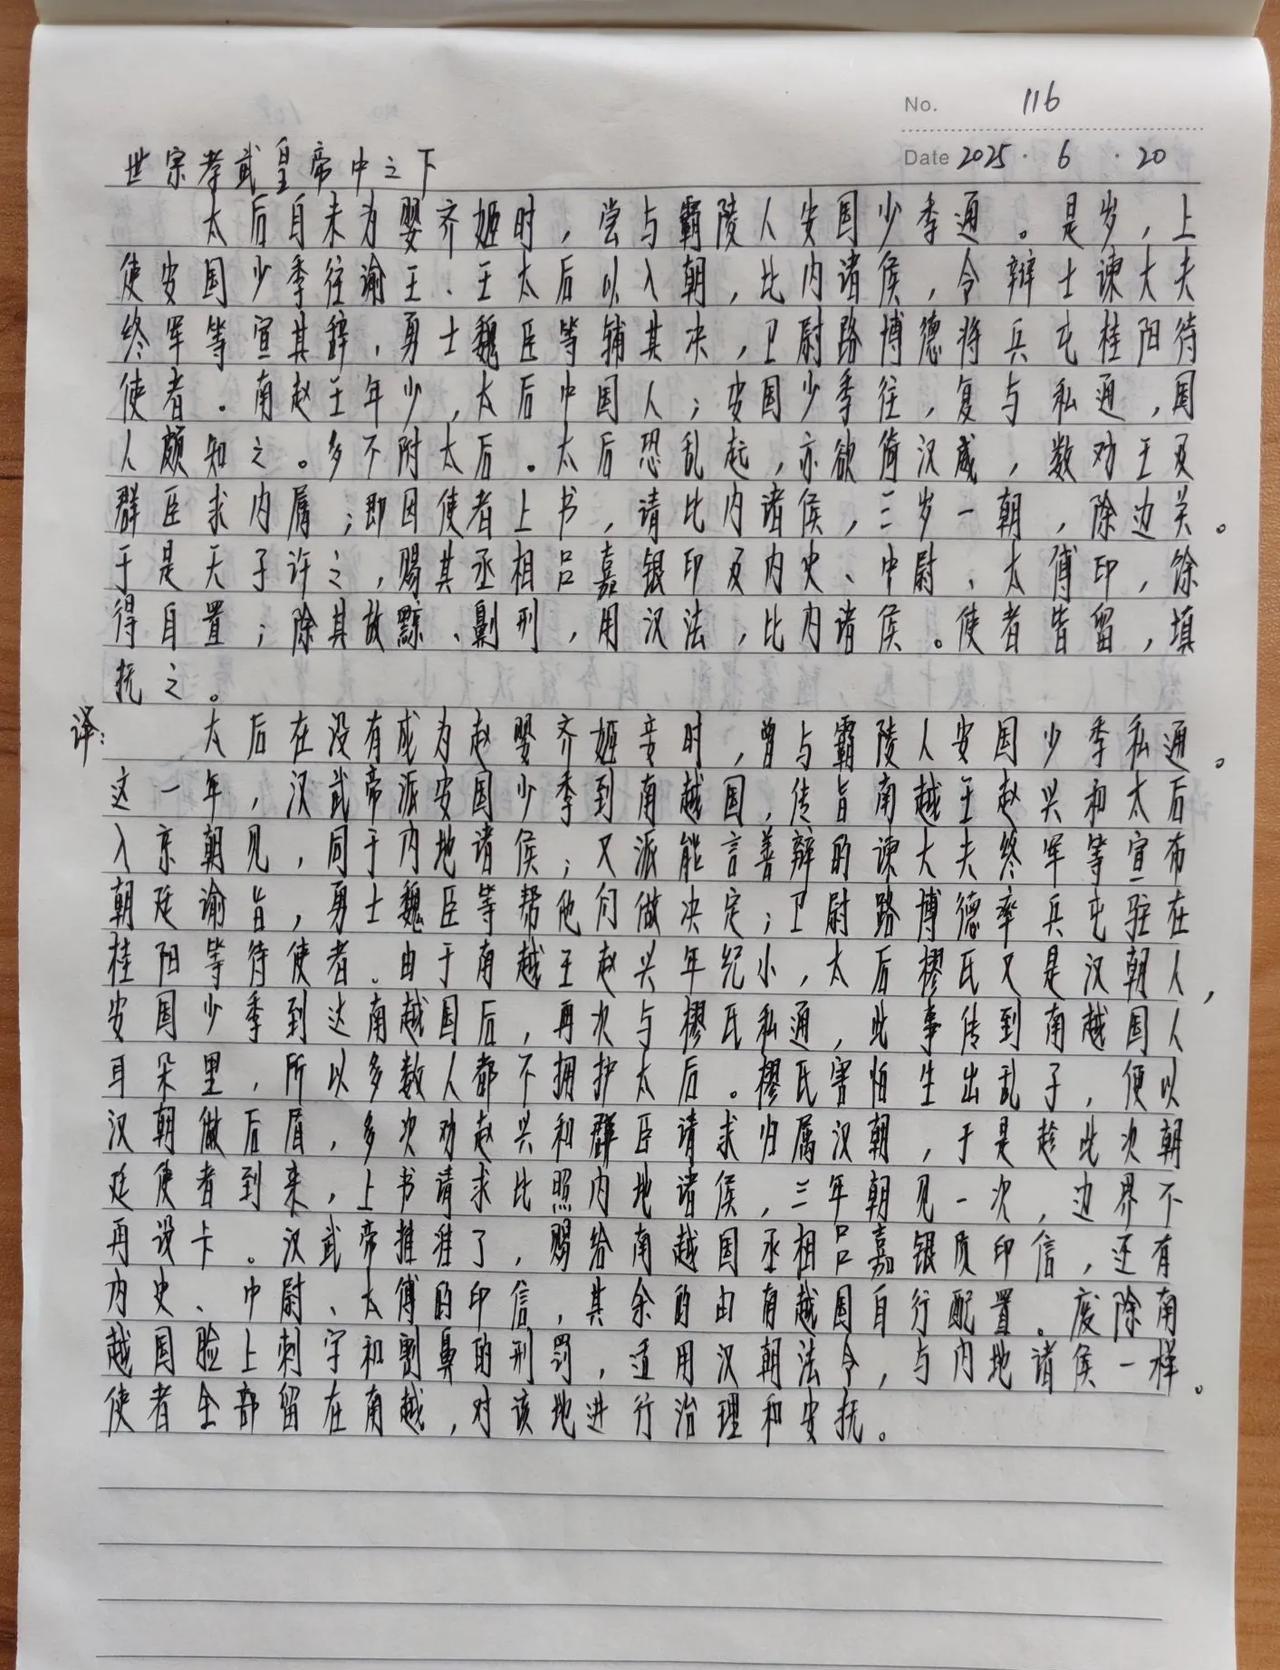 No. 116
Date 2025 · 6 · 20
世宗孝武皇帝中之下
太后自未为婴齐姬时，尝与霸陵人安国少季通。是岁，上
使安国少季往谕王、王太后以入朝，比内诸侯，令辩士谏大夫
终军等宣其辞，勇士魏臣等辅其决，卫尉路博德将兵屯桂阳待
使者。南赵王年少，太后中国人；安国少季往，复与私通，国
人颇知之。多不附太后。太后恐乱起，亦欲倚汉威，数劝王及
群臣求内属；即因使者上书，请比内诸侯，三岁一朝，除边关。
于是天子许之，赐其丞相吕嘉银印及内史、中尉、太傅印，馀
得自置；除其故黥、劓刑，用汉法，比内诸侯。使者皆留，填
抚之。
译：太后在没有成为赵婴齐姬妾时，曾与霸陵人安国少季私通。
这一年，汉武帝派安国少季到南越国，传旨南越王赵兴和太后
入京朝见，同于内地诸侯；又派能言善辩的谏大夫终军等宣布
朝廷谕旨，勇士魏臣等帮他们做决定；卫尉路博德率兵屯驻在
桂阳等待使者。由于南越王赵兴年纪小，太后樛氏又是汉朝人，
安国少季到达南越国后，再次与樛氏私通，此事传到南越国人
耳朵里，所以多数人都不拥护太后。樛氏害怕生出乱子，便以
汉朝做后盾，多次劝赵兴和群臣请求归属汉朝，于是趁此次朝
廷使者到来，上书请求比照内地诸侯，三年朝见一次，边界不
再设卡。汉武帝推准了，赐给南越国丞相吕嘉银质印信，还有
内史、中尉、太傅的印信，其余的由南越国自行配置。废除南
越国脸上刺字和割鼻的刑罚，适用汉朝法令，与内地诸侯一样。
使者全部留在南越，对该地进行治理和安抚。